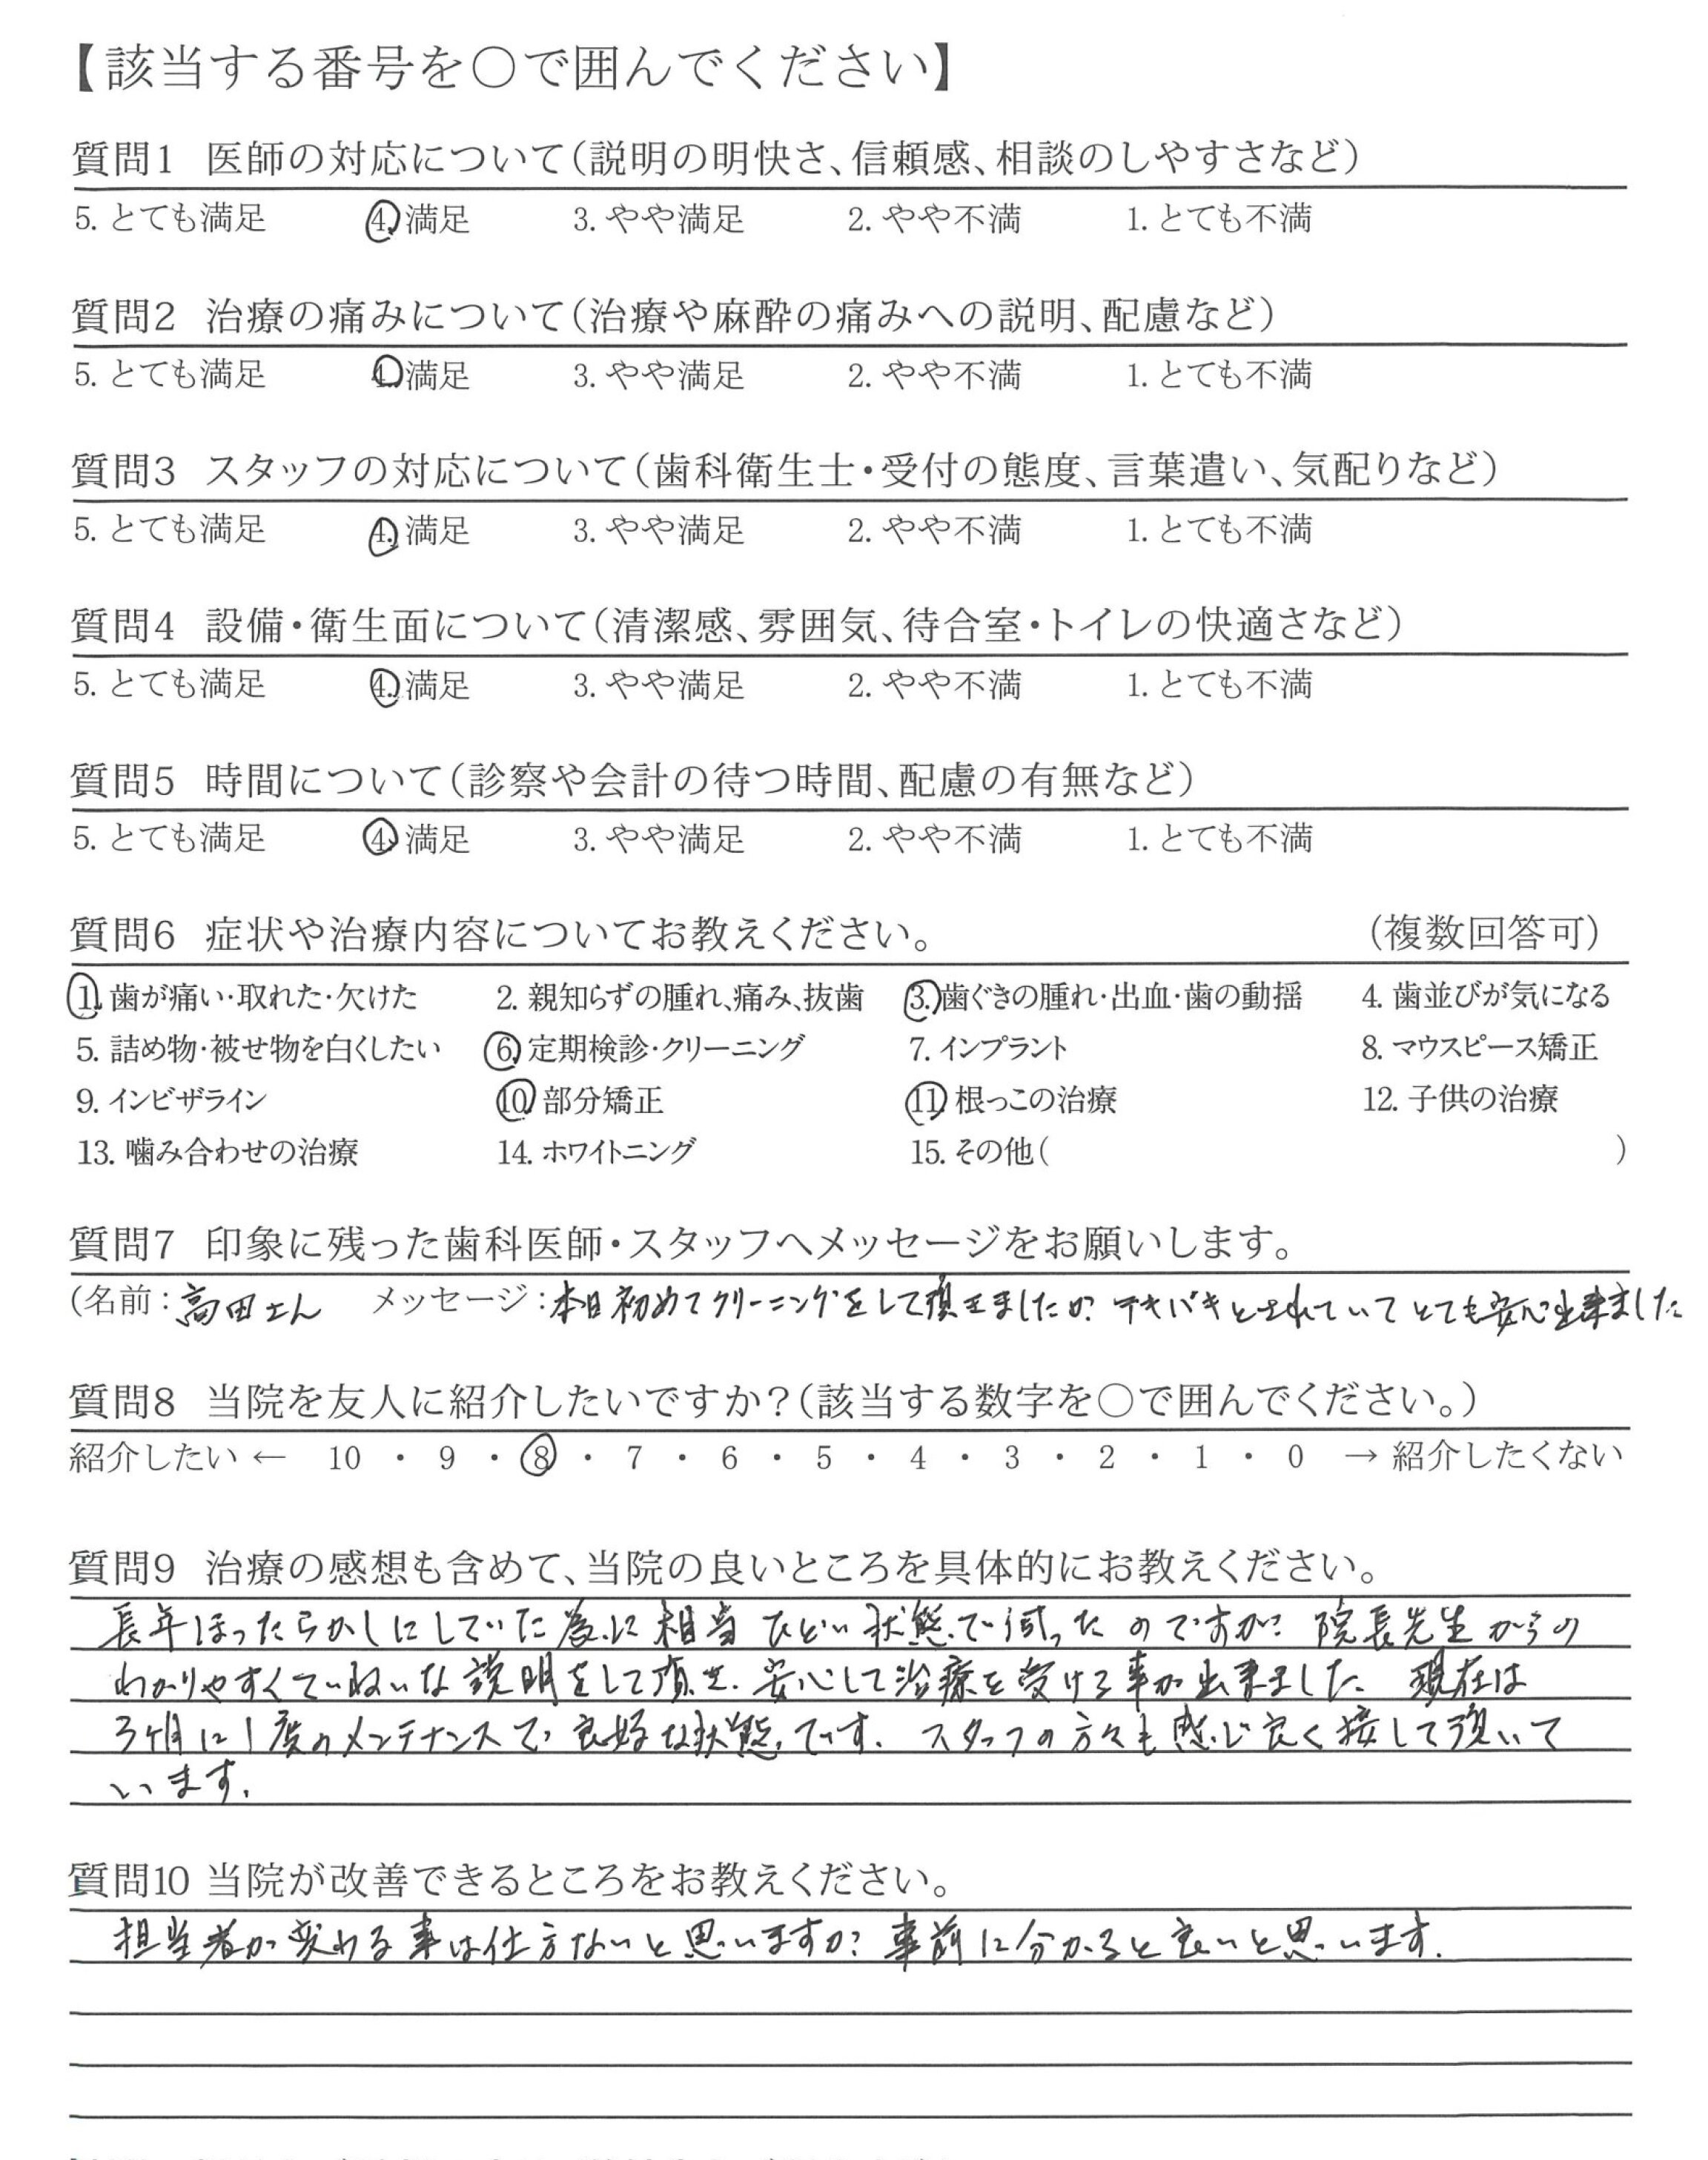 【該当する番号を○で囲んでください】
質問1 医師の対応について（説明の明快さ、信頼感、相談のしやすさなど）
5. とても満足 4. 満足 3. やや満足 2. やや不満 1. とても不満
質問2 治療の痛みについて（治療や麻酔の痛みへの説明、配慮など）
5. とても満足 4. 満足 3. やや満足 2. やや不満 1. とても不満
質問3 スタッフの対応について（歯科衛生士・受付の態度、言葉遣い、気配りなど）
5. とても満足 4. 満足 3. やや満足 2. やや不満 1. とても不満
質問4 設備・衛生面について（清潔感、雰囲気、待合室・トイレの快適さなど）
5. とても満足 4. 満足 3. やや満足 2. やや不満 1. とても不満
質問5 時間について（診察や会計の待つ時間、配慮の有無など）
5. とても満足 4. 満足 3. やや満足 2. やや不満 1. とても不満
質問6 症状や治療内容についてお教えください。 （複数回答可）
1. 歯が痛い・取れた・欠けた 2. 親知らずの腫れ、痛み、抜歯 3. 歯ぐきの腫れ・出血・歯の動揺 4. 歯並びが気になる
5. 詰め物・被せ物を白くしたい 6. 定期検診・クリーニング 7. インプラント 8. マウスピース矯正
9. インビザライン 10. 部分矯正 11. 根っこの治療 12. 子供の治療
13. 噛み合わせの治療 14. ホワイトニング 15. その他（ ）
質問7 印象に残った歯科医師・スタッフへメッセージをお願いします。
（名前：高田さん メッセージ：本日初めてクリーニングをして頂きましたが テキパキとされていてとても安心出来ました
質問8 当院を友人に紹介したいですか？（該当する数字を○で囲んでください。）
紹介したい ← 10 ・ 9 ・ 8 ・ 7 ・ 6 ・ 5 ・ 4 ・ 3 ・ 2 ・ 1 ・ 0 → 紹介したくない
質問9 治療の感想も含めて、当院の良いところを具体的にお教えください。
長年ほったらかしにしていた為に相当ひどい状態で伺ったのですが 院長先生からの
わかりやすくていねいな説明をして頂き、安心して治療を受ける事が出来ました。 現在は
3ヶ月に1度のメンテナンスで良好な状態です。 スタッフの方々も感じ良く接して頂いて
います。
質問10 当院が改善できるところをお教えください。
担当者が変わる事は仕方ないと思いますが 事前に分かると良いと思います。